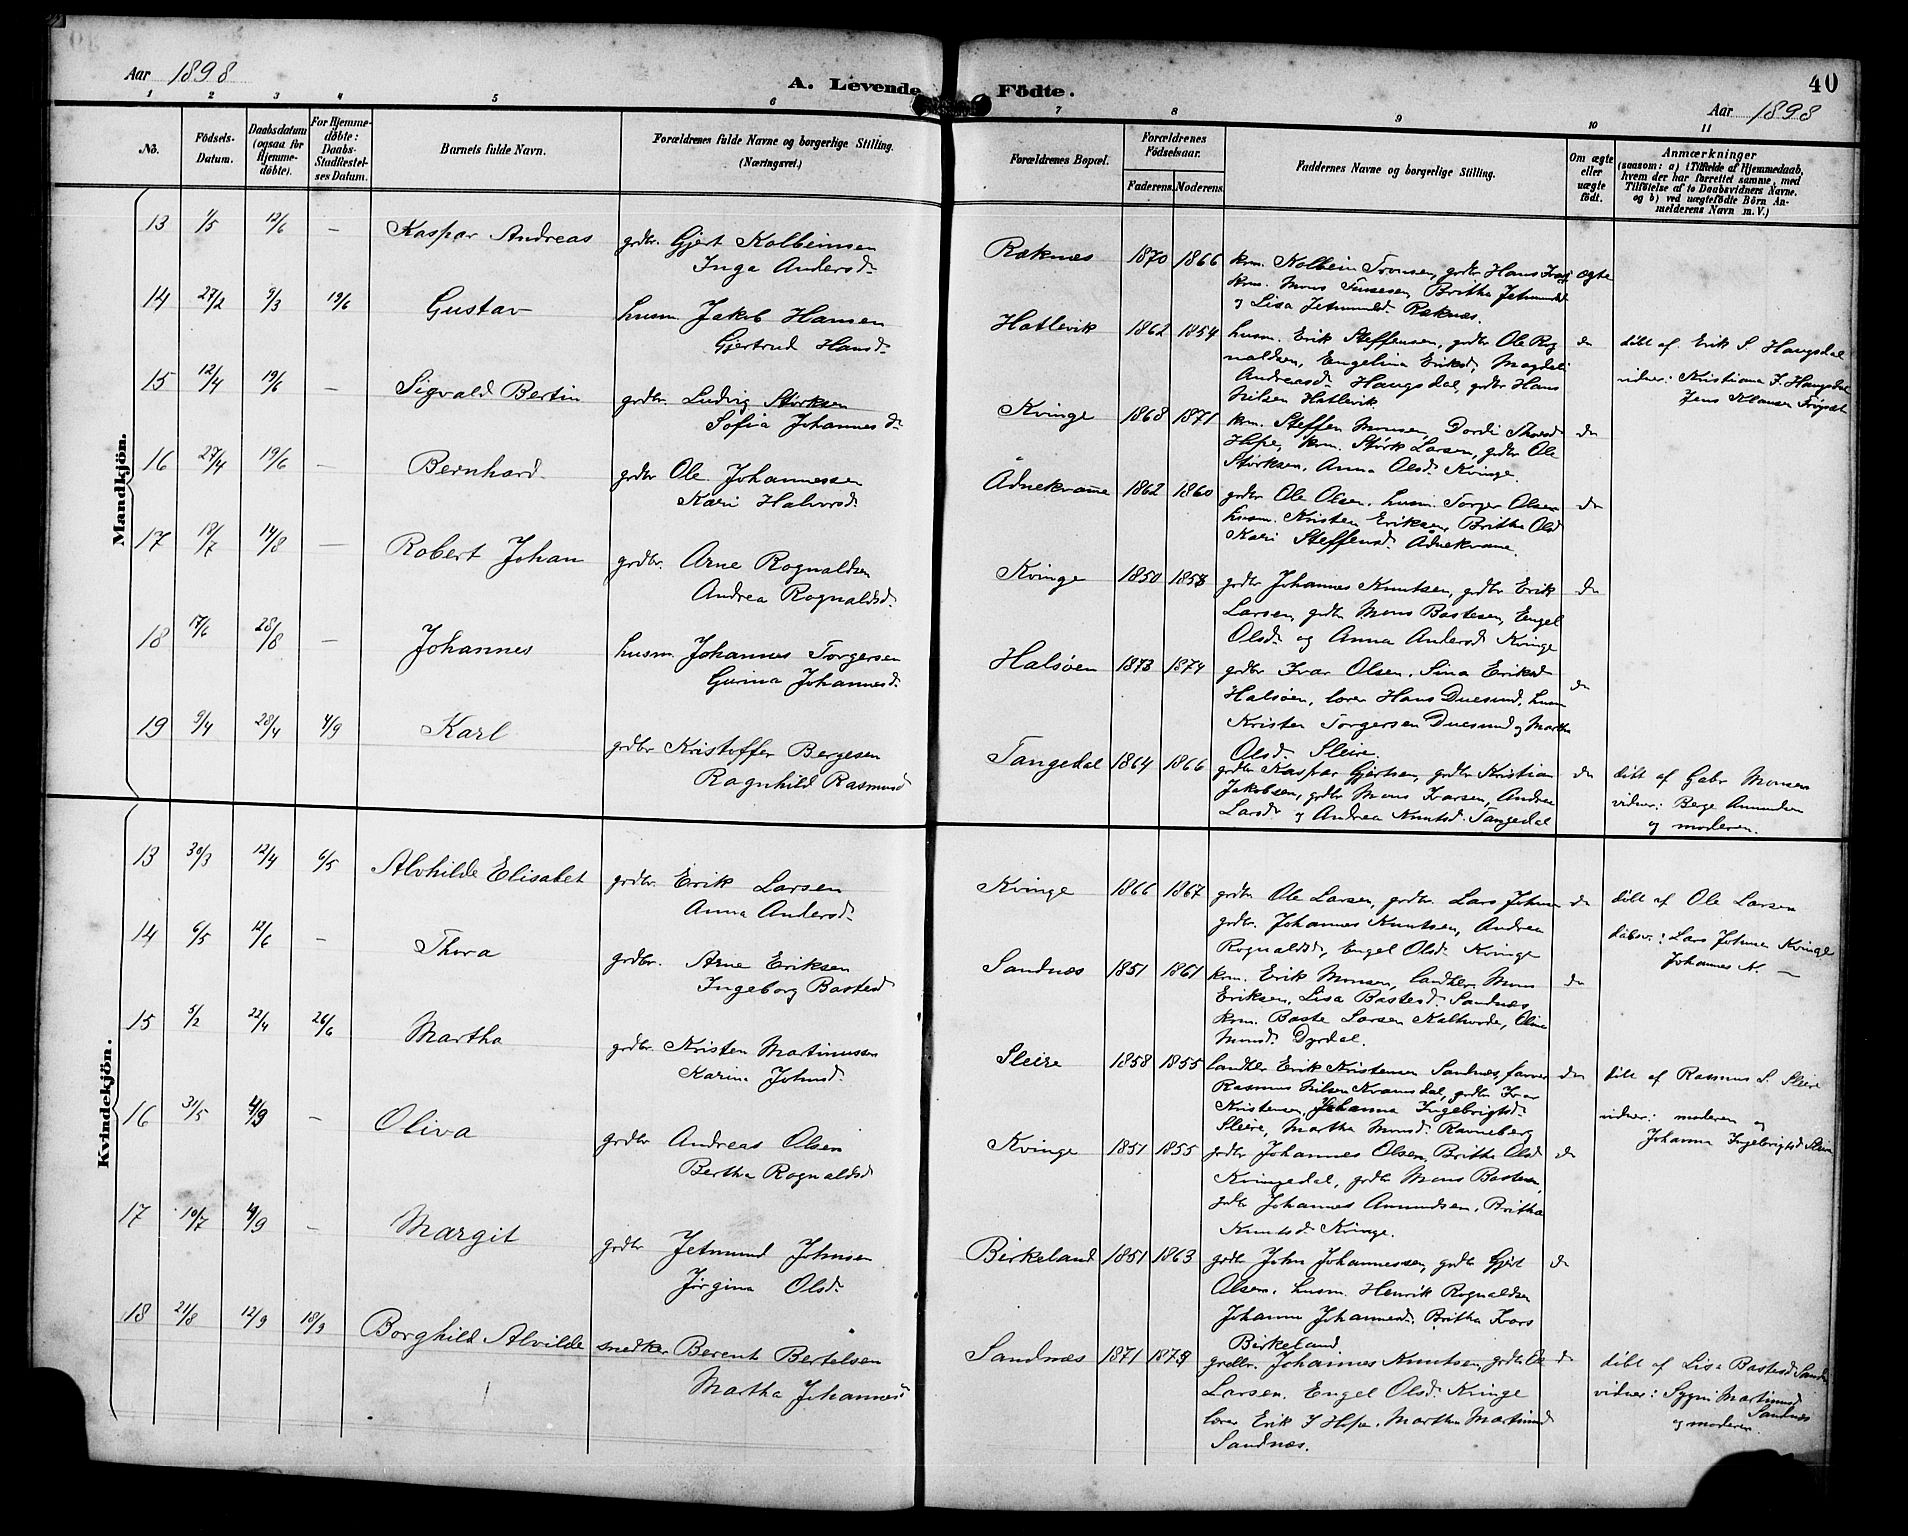 Aar 1898
A. Levende Födte.
40
Aar 1898
1 2 3 4 5 6 7 8 9 10 11
No.
Födsels-Datum.
Daabsdatum (ogsaa for Hjemme-döbte).
For Hjemme-döbte: Daabs-Stadfæstel-ses Datum.
Barnets fulde Navn.
Forældrenes fulde Navne og borgerlige Stilling.
(Næringsvei.)
Forældrenes Bopæl.
Forældrenes Födselsaar.
Faderens. Moderens.
Faddernes Navne og borgerlige Stilling.
Om ægte eller uægte födt.
Anmærkninger
(saasom: a) i Tilfælde af Hjemmedaab,
hvem der har forrettet samme, med
Tilföielse af to Daabsvidners Navne.
og b) ved uægtefödte Börn An-
melderens Navn m. V.)
Mandkjön.
13 1/5 12/6 — Kaspar Andreas grdbr. Gjert Kolbeinsen
Inga Andersd.
Ræknes 1870 1866 krm. Kolbein Tronsen, grdbr Hans Ivars ægte
krm. Mons Britha Jetmundsd
og Lisa Jetmundsd. Ræknes.
14 27/2 9/3 19/6 Gustav husm. Jakob Hansen
Gjertrud Hansd.
Hatlevik 1862 1854 husm. Erik Steffensen, grdbr Ole Rog do
naldsen, Engelina Eriksd, Magdeli
Andreasd. Haugsdal, grdbr Hans
Nilsen Hatlevik.
döbt af Erik S. Haugsdal
vidner: Kristiana J. Haugsdal
Jens Klausen Frøyset
15 12/4 19/6 — Sigvald Bertin grdbr. Ludvig Størksen
Sofia Johannesd.
Kvinge 1868 1871 krm. Steffen Monsen, Dordi do
Hope, krm. Størk Larsen, grdbr Ole
Størksen, Anna Olsd. Kvinge.
16 27/4 19/6 — Bernhard grdbr Ole Johannessen
Kari Halvorsd.
Ådnekvame 1862 1860 grdbr Ole Olsen, husm. Torger Olsen do
husm. Kristen Eriksen, Britha Olsd
Kari Steffensd. Ådnekvame.
17 18/7 14/8 — Robert Johan grdbr. Arne Rognaldsen
Andrea Rognaldsd.
Kvinge 1850 1858 grdbr Johannes Knutsen, grdbr Erik do
Larsen, grdbr Mons Bastesen, Engel
Olsd. og Anna Andersd Kvinge
18 17/6 28/8 — Johannes husm. Johannes Torgersen
Gurina Johannesd.
Halsøen 1873 1874 grdbr Ivar Olsen, Sina Eriksd do
Halsøen, lærer Hans Duesund, husm
Kristen Torgersen Duesund og Martha
Olsd. Sleire.
19 9/4 28/4 4/9 Karl grdbr Kristoffer Bergesen
Ragnhild Rasmusd
Tangedal 1864 1866 grdbr Kaspar Gjertsen, grdbr Kristian do
Jakobsen, grdbr Mons Ivarsen, Andrea
Larsd. og Andrea Knutsd. Tangedal
döbt af Gabr Monsen
vidner: Berge Amundsen
og moderen.
Kvindekjön.
13 30/3 12/4 6/5 Alvhilde Elisabet grdbr. Erik Larsen
Anna Andersd.
Kvinge 1866 1867 grdbr Ole Larsen, grdbr. Lars Johns do
grdbr. Johannes Knutsen, Andrea
Rognaldsd, Engel Olsd. Kvinge
döbt af Ole Larsen
dåbsv.: Lars Johnsen Kvinge
Johannes K. —
14 6/5 12/6 — Thora grdbr. Arne Eriksen
Ingeborg Bastesd
Sandnæs 1851 1861 krm. Erik Monsen, landhdler Mons do
Eriksen, Lisa Bastesd. Sandnæs
krm. Baste Larsen Kalhovde, Oline
Monsd. Dyrdal.
15 5/2 22/4 26/6 Martha grdbr. Kristen Martinussen
Karina Johnsd.
Sleire 1858 1855 landhdler Erik Kristensen Sandnæs, farver do
Rasmus Nilsen Kvamsdal, grdbr Ivar
Kristensen, Johanna Ingebrigtsd.
Sleire, Martha Monsd. Ravneberg
döbt af Rasmus S. Sleire
vidner: moderen og
Johanna Ingebrigtsd Sleire
16 31/5 4/9 — Oliva grdbr Andreas Olsen
Bertha Rognaldsd
Kvinge 1851 1855 grdbr Johannes Olsen, Britha Olsd do
Kvingedal, grdbr Mons Bastesen,
grdbr Johannes Amundsen, Britha
Knutsd. Kvinge.
17 10/7 4/9 — Margit grdbr Jetmund Johnsen
Jørgina Olsd.
Birkeland 1851 1863 grdbr John Johannessen, grdbr Gjert do
Olsen, husm. Henrik Rognaldsen
Johanna Johannesd. Britha Ivars
Birkeland.
18 21/8 12/9 18/9 Borghild Alvilde snedker Berent Bertelsen
Martha Johannesd
Sandnæs 1871 1875 grdbr. Johannes Knutsen, grdbr Ole do
Larsen, Engel Olsd. Kvinge
lærer Erik J Hope, Martha Martinusd
Sandnæs.
döbt af Lisa Bastesd Sandn
vidner: Sygni Martinusd
Sandnæs
og moderen.